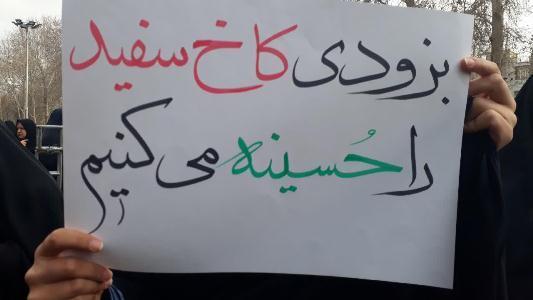 بزودی کاخ سفید
را حُسینه می کنیم